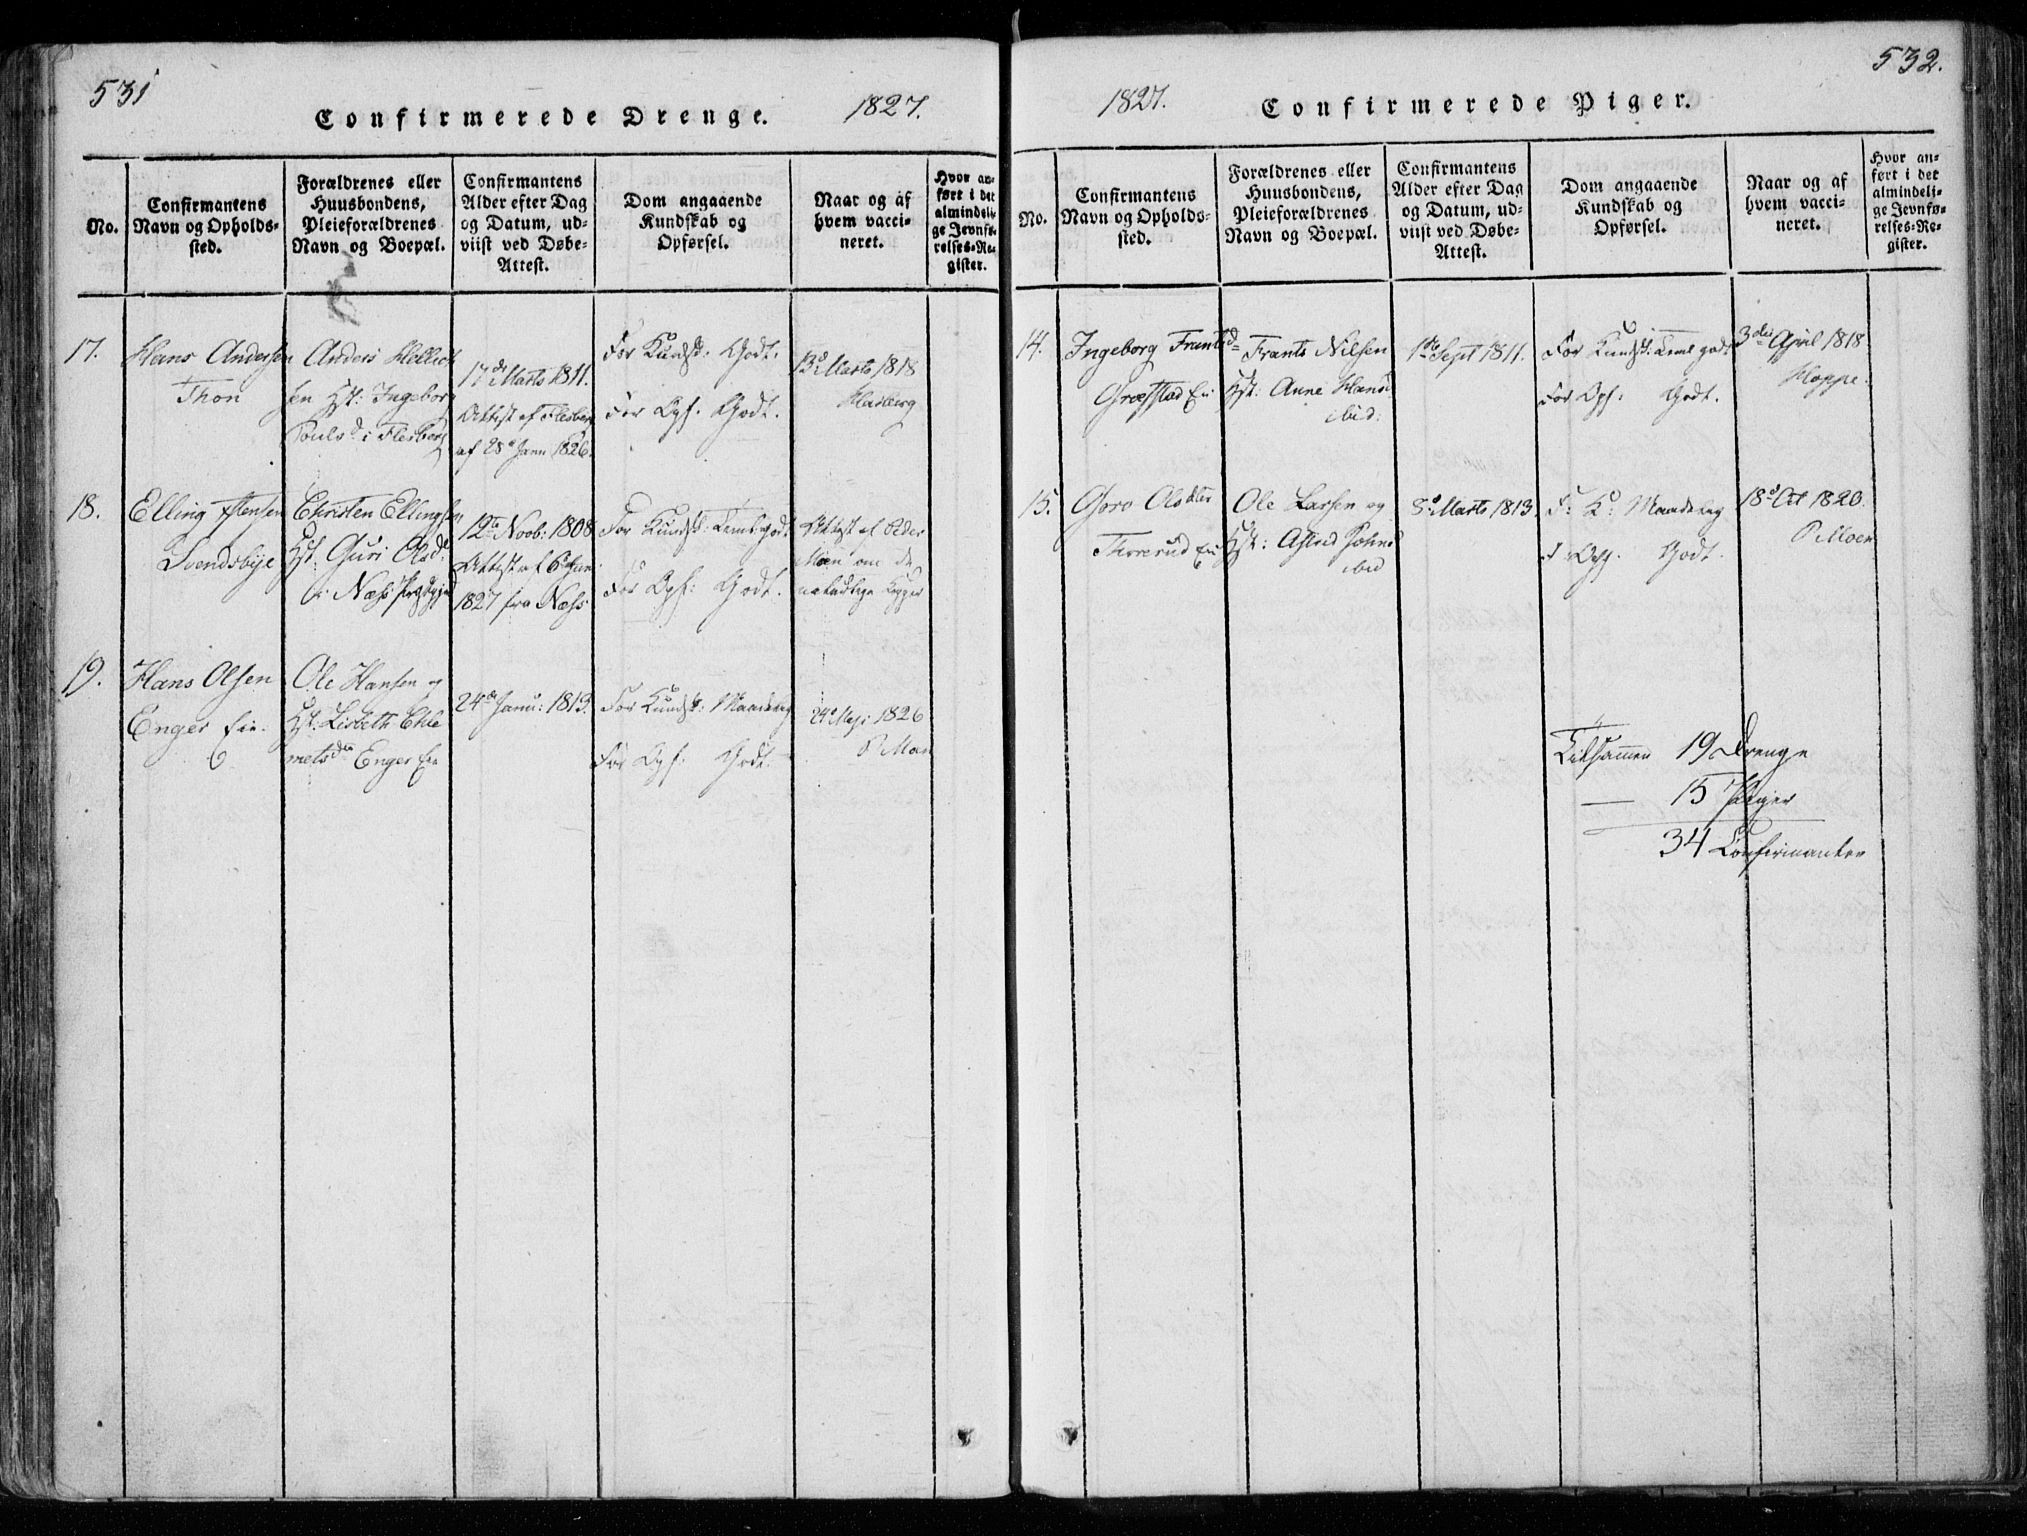 531
Confirmerede Drenge. 1827.
No.
Confirmantens
Navn og Opholds-
sted.
Forældrenes eller
Huusbondens,
Pleieforældrenes
Navn og Boepæl.
Confirmantens
Alder efter Dag
og Datum, ud-
viist ved Døbe-
Attest.
Dom angaaende
Kundskab og
Opførsel.
Naar og af
hvem vacci-
neret.
Hvor an-
ført i det
almindeli-
ge Jevnfø-
relses-Re-
gister.
17.
Hans Andersen
Thon
Anders Hellics
sen Hst: Ingeborg
Pouls d i Flesberg
17de Marts 1811.
Attest af Flesberg
af 28d Janu 1826.
For Kundsk: Godt.
For Opf: Godt.
13d Marts 1818
Hasberg
18.
Elling stensen
Svendsbye
Christen Ellingsen
Hst: Guri Olsd
i Næss Prgdgjed
12te Novb: 1808
Attest af 6d Janu
1827 fra Næss
For Kundsk: Teml: godt
For Opf: Godt.
Attest af Peder
Moen om de
naturlige Kopper
19.
Hans Olsen
Enger Eie.
Ole Hansen og
Hst. Lisbeth Ehle
metsd Enger Eie
24de Janu: 1813.
For Kundsk: Maadelig
For Opf: Godt.
24d Maji 1826
P. Moen
532.
1827. Confirmerede Piger.
No.
Confirmantens
Navn og Opholds-
sted.
Forældrenes eller
Huusbondens,
Pleieforældrenes
Navn og Boepæl.
Confirmantens
Alder efter Dag
og Datum, ud-
viist ved Døbe-
Attest.
Dom angaaende
Kundskab og
Opførsel.
Naar og af
hvem vacci-
neret.
Hvor an-
ført i det
almindeli-
ge Jevnfø-
relses-Re-
gister.
14.
Ingeborg Frantsd
Græsstad Ei
Frants Nilsen
Hst: Anne Hans
ibid:
1ste Sept 1811.
For Kundsk: Teml godt
For Opf: Godt.
3die April 1818
Hoppe.
15.
Goro Olsdter
Thorerud Ei
Ole Larsen og
Hst: Astrid Johns
ibid
8d Marts 1813.
F: K: Maadelig
F: Opf. Godt.
18d Oct 1820.
P. Moen
Tilsamen 19 Drenge
— 15 Piger
34 Confirmanter